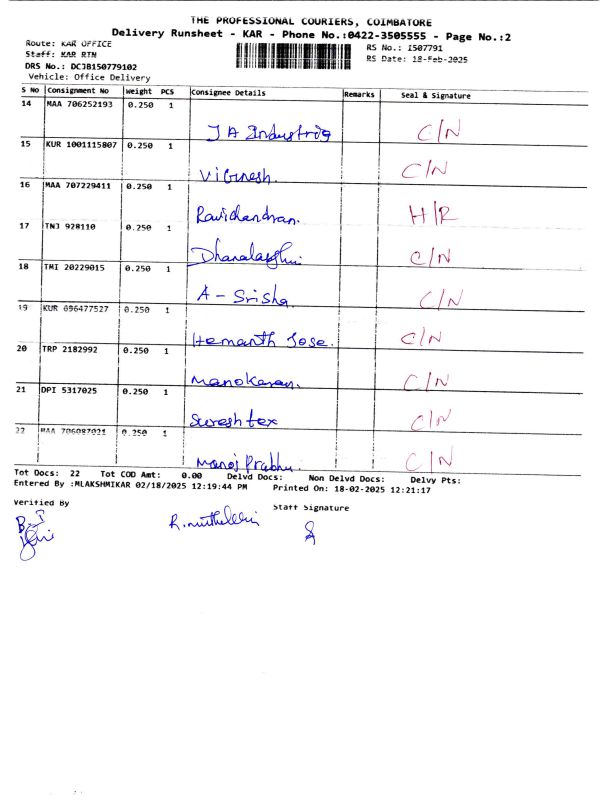 THE PROFESSIONAL COURIERS, COIMBATORE
Delivery Runsheet - KAR - Phone No.:0422-3505555 - Page No.:2
Route: KAR OFFICE
RS No.: I507791
Staff: KAR RTN
RS Date: 18-Feb-2025
DRS No.: DCJB150779102
Vehicle: Office Delivery
S No Consignment No Weight PCS Consignee Details Remarks Seal & Signature
14 MAA 706252193 0.250 1
J A Industrig C/N
15 KUR 1001115807 0.250 1
Vignesh. C/N
16 MAA 707229411 0.250 1
Ravichandran. H/R
17 TNJ 928110 0.250 1
C/N
18 TMI 20229015 0.250 1
A - Srisha C/N
19 KUR 696477527 0.250 1
Hemanth Jose. C/N
20 TRP 2182992 0.250 1
Manokaran. C/N
21 DPI 5317025 0.250 1
Suresh tex C/N
22 MAA 706087021 0.250 1
Manoj Prabhu. C/N
Tot Docs: 22 Tot COD Amt: 0.00 Delvd Docs: Non Delvd Docs: Delvy Pts:
Entered By :MLAKSHMIKAR 02/18/2025 12:19:44 PM Printed On: 18-02-2025 12:21:17
Verified By
Staff Signature